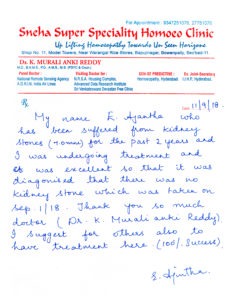 For Appointment: 9347251075, 27751075
Sneha Super Speciality Homoeo Clinic
Up Lifting Homoeopathy Towards Un Seen Horizons
Shop No. 17, Model Towers, Near Warangal Rice Stores, Bapunagar, Gowenpally, Sec'bad-11
Dr. K. MURALI ANKI REDDY
Panel Doctor :
National Remote Sensing Agency
A.O.K.M. India Air Lines
Visiting Doctor for :
N.T.S.A. Hospital Complex,
Advanced Data Research Institute
Sri Venkateswara Swadeen Free Clinic
GEN OF PREDICTIVE
Homoeopathy, Hyderabad
Ex. Joint Secretary
I.I.H.P. Hyderabad.
Rx
Date 11/9/18.
My name E. Ajantha who
has been suffered from kidney
stones (4.0mm) for the past 2 years and
I was undergoing treatment and
it was excellent so that it was
diagonised that there was no
kidney stone which was taken on
Sep 1/18. Thank you so much
doctor (Dr. K. Murali anki Reddy)
I suggest for others also to
have treatment here (100% Success)
E. Ajntha.